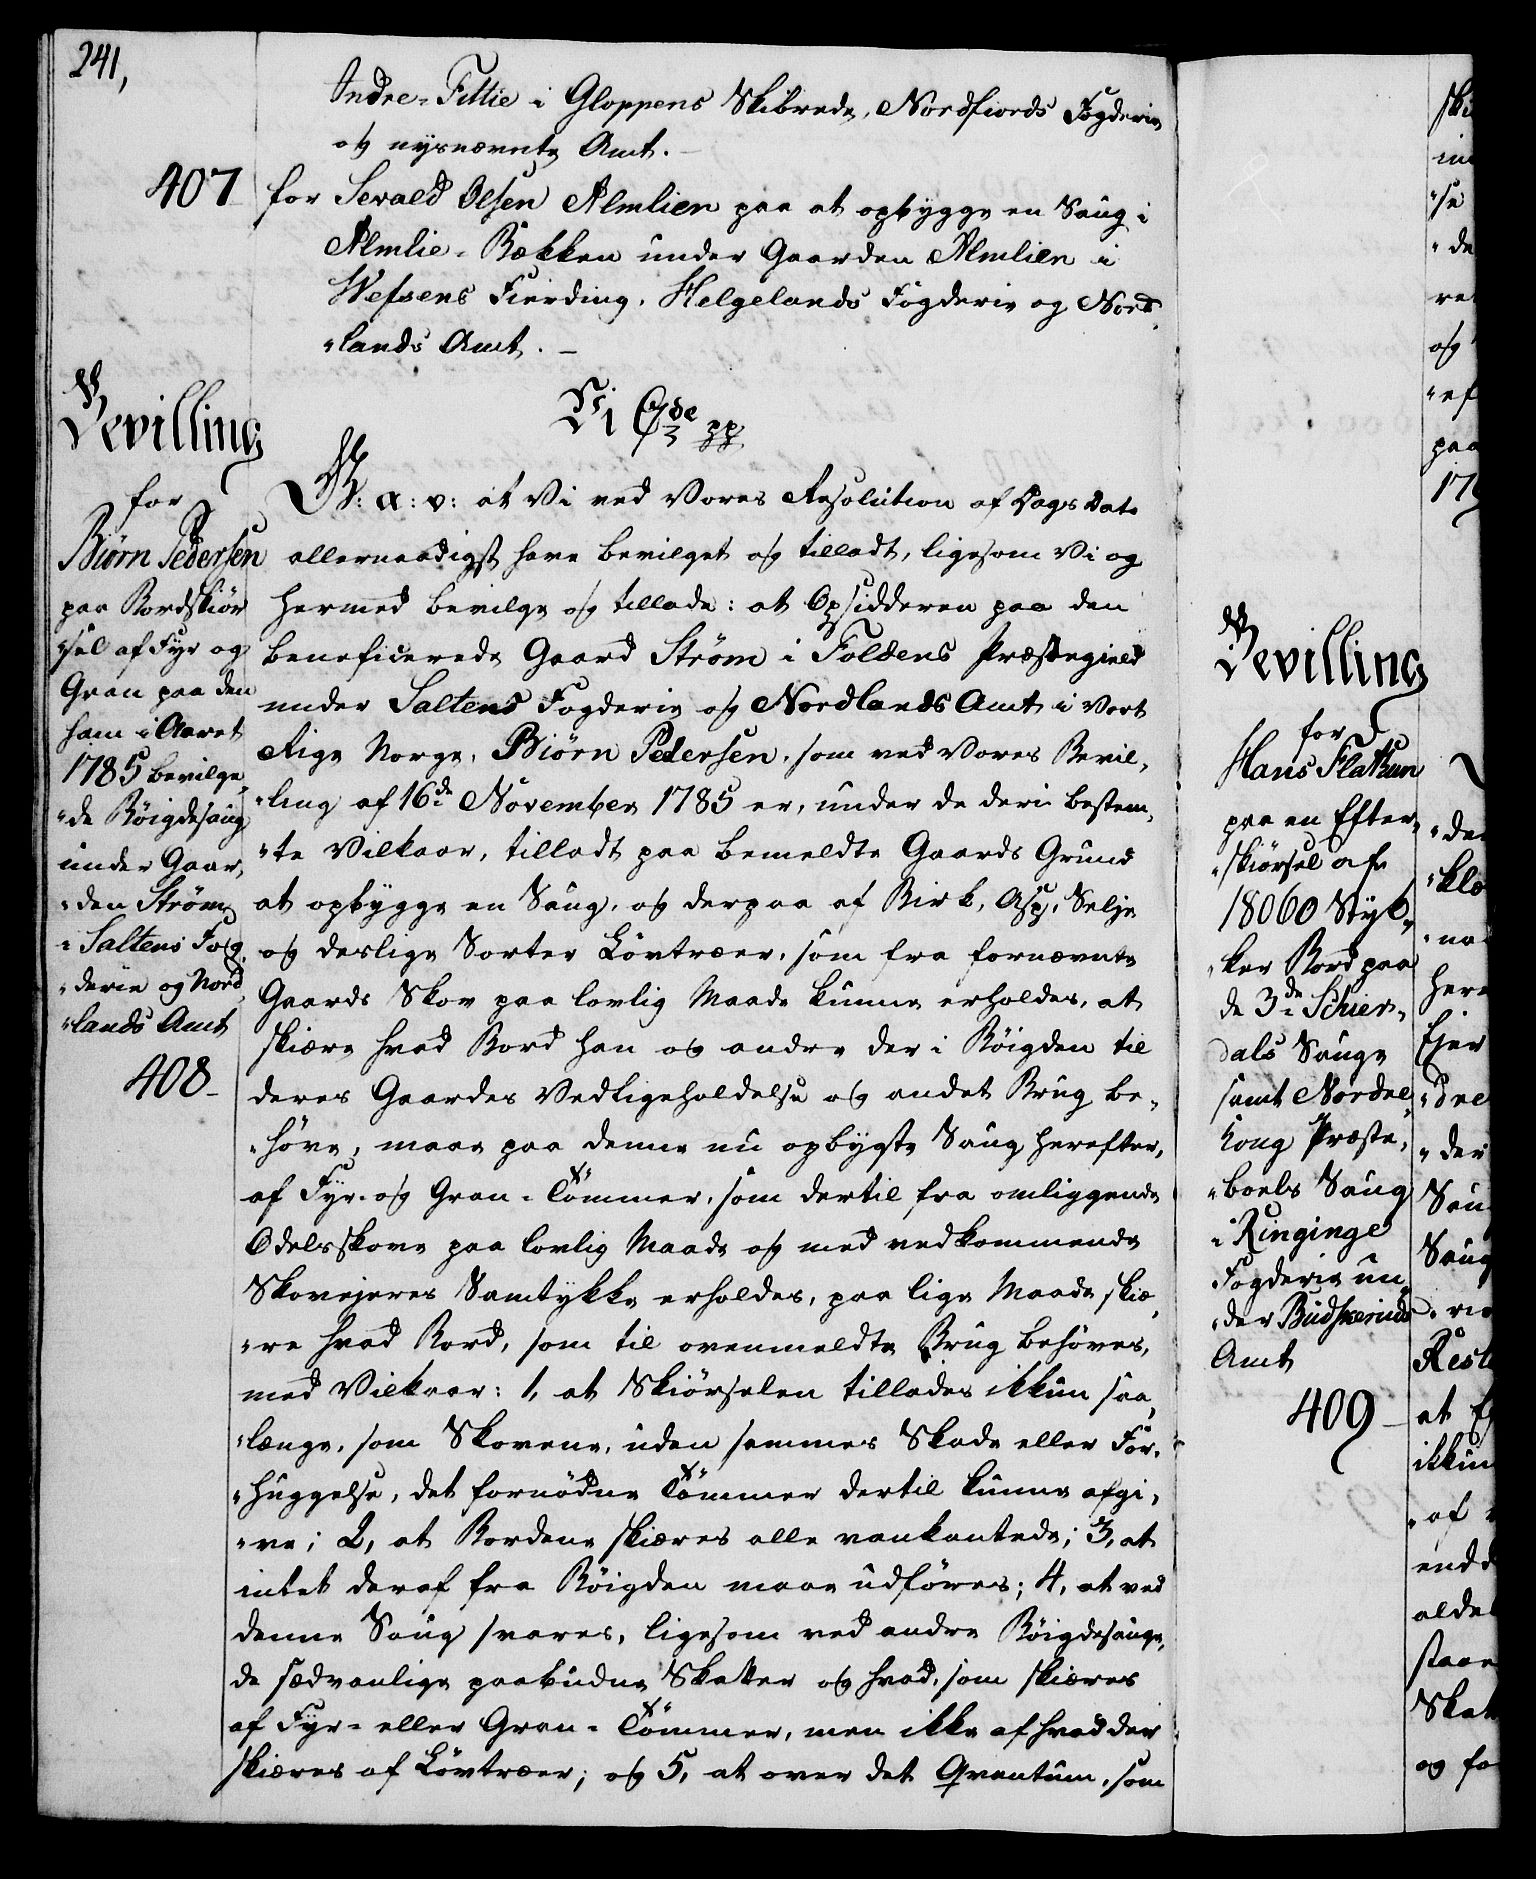 241,
Indre-Fittie i Gloppens Skibrede, Nordfiords Fogderie
og nysnævnte Amt.
407 for Sevald Olsen Almlien paa at opbygge en Saug i
Almlie-Bækken under Gaarden Almlien i
Wefsens Fierding, Helgelands Fogderie og Nord-
"lands Amt.
Bevilling
for
Biørn Pedersen
paa Bordskiør
"sel af Fyr og
Gran paa den
ham i Aaret
1785 bevilge,
"de Böigdesaug
under Gaar,
"den Strøm
i Saltens Fog,
"derie og Nord
"lands Amt
408
Vi C 7de pp
G: A: V: at Vi ved Vores Resolution af Dags Dato
allernaadigst have bevilget og tilladt, ligesom Vi og
hermed bevilge og tillade: at Opsidderen paa den
beneficerede Gaard Strøm i Foldens Præstegield
under Saltens Fogderie og Nordlands Amt i Vort
Rige Norge, Biørn Pedersen, som ved Vores Bevil,
"ling af 16de November 1785 er, under de deri bestem,
"te Vilkaar, tilladt paa bemeldte Gaards Grund
at opbygge en Saug, og derpaa af Birk, Asp, Selje
og deslige Sorter Lövtræer, som fra fornævnte
Gaards Skov paa lovlig Maade kunne erholdes, at
skiære hvad Bord han og andre der i Böigden til
deres Gaardes Vedligeholdelse og andet Brug be,
"höve, maae paa denne nu opbygte Saug herefter,
af Fyr- og Gran-Tömmer, som dertil fra omliggende
Odelsskove paa lovlig Maade og med vedkommende
Skovejeres Samtykke erholdes, paa lige Maade skiæ,
"re hvad Bord, som til ovenmeldte Brug behöves,
med Vilkaar: 1, at Skiörselen tillades ikkun saa,
"længe, som Skovene, uden sammes Skade eller For,
"huggelse, det fornödne Tömmer dertil kunne afgi,
"ve; 2, at Bordene skiæres alle vankantede; 3, at
intet deraf fra Böigden maae udföres; 4, at ved
denne Saug svares, ligesom ved andre Böigdesauge,
de sædvanlige paabudne Skatter og hvad, som skiæres
af Fyr- eller Gran-Tömmer, men ikke af hvad der
skiæres af Lövtræer; og 5, at over det Qvantum, som
Bevilling
for
Hans Flathun
paa en Efter,
"skiörsel af
18060 Styk,
"ker Bord paa
de 3de Schier,
dals Sauge
samt Norde
Præste,
"boels Saug
i Ringinge
Fogderie un,
"der Budskeruds
Amt
409